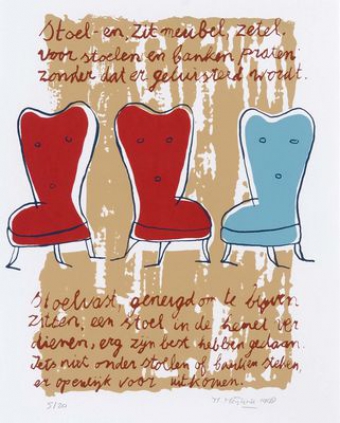 Stoel- en, zit meubel, zetel.
voor stoelen en banken praten
zonder dat er geluisterd wordt.
Stoelvast, geneigd om te blijven
zitten, een stoel in de hemel ver
dienen, erg zijn best hebben gedaan.
Iets niet onder stoelen of banken steken,
er openlijk voor uitkomen.
5/20